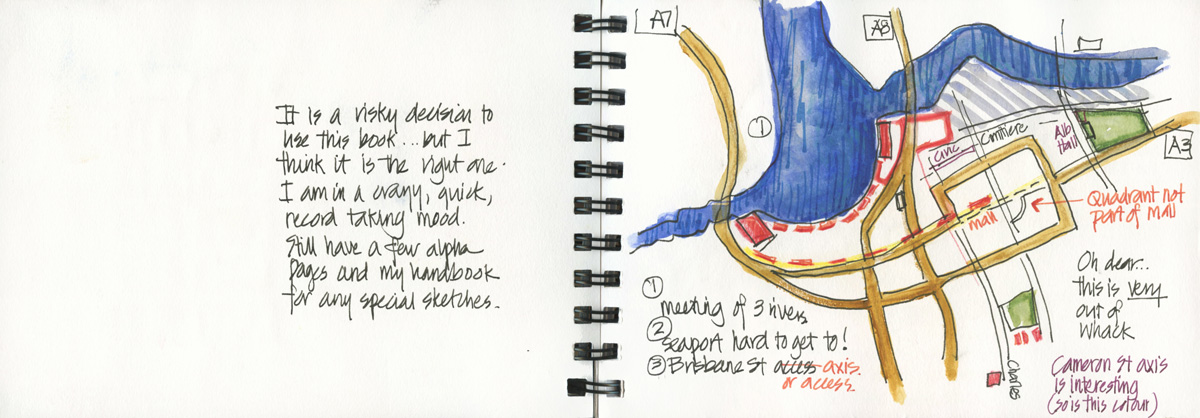 It is a risky decision to
use this book...but I
think it is the right one.
I am in a crazy, quick,
record taking mood.
Still have a few alpha
pages and my handbook
for any special sketches.
A7
A8
1
civic
Cimitiere
Alb
Hall
A3
mall
Quadrant not
part of Mall
Oh dear...
this is very
out of
whack
1
meeting of 3 rivers
2
seaport hard to get to!
3 Brisbane St access axis
or access
Charles
Cameron St axis
is interesting
(so is this colour)